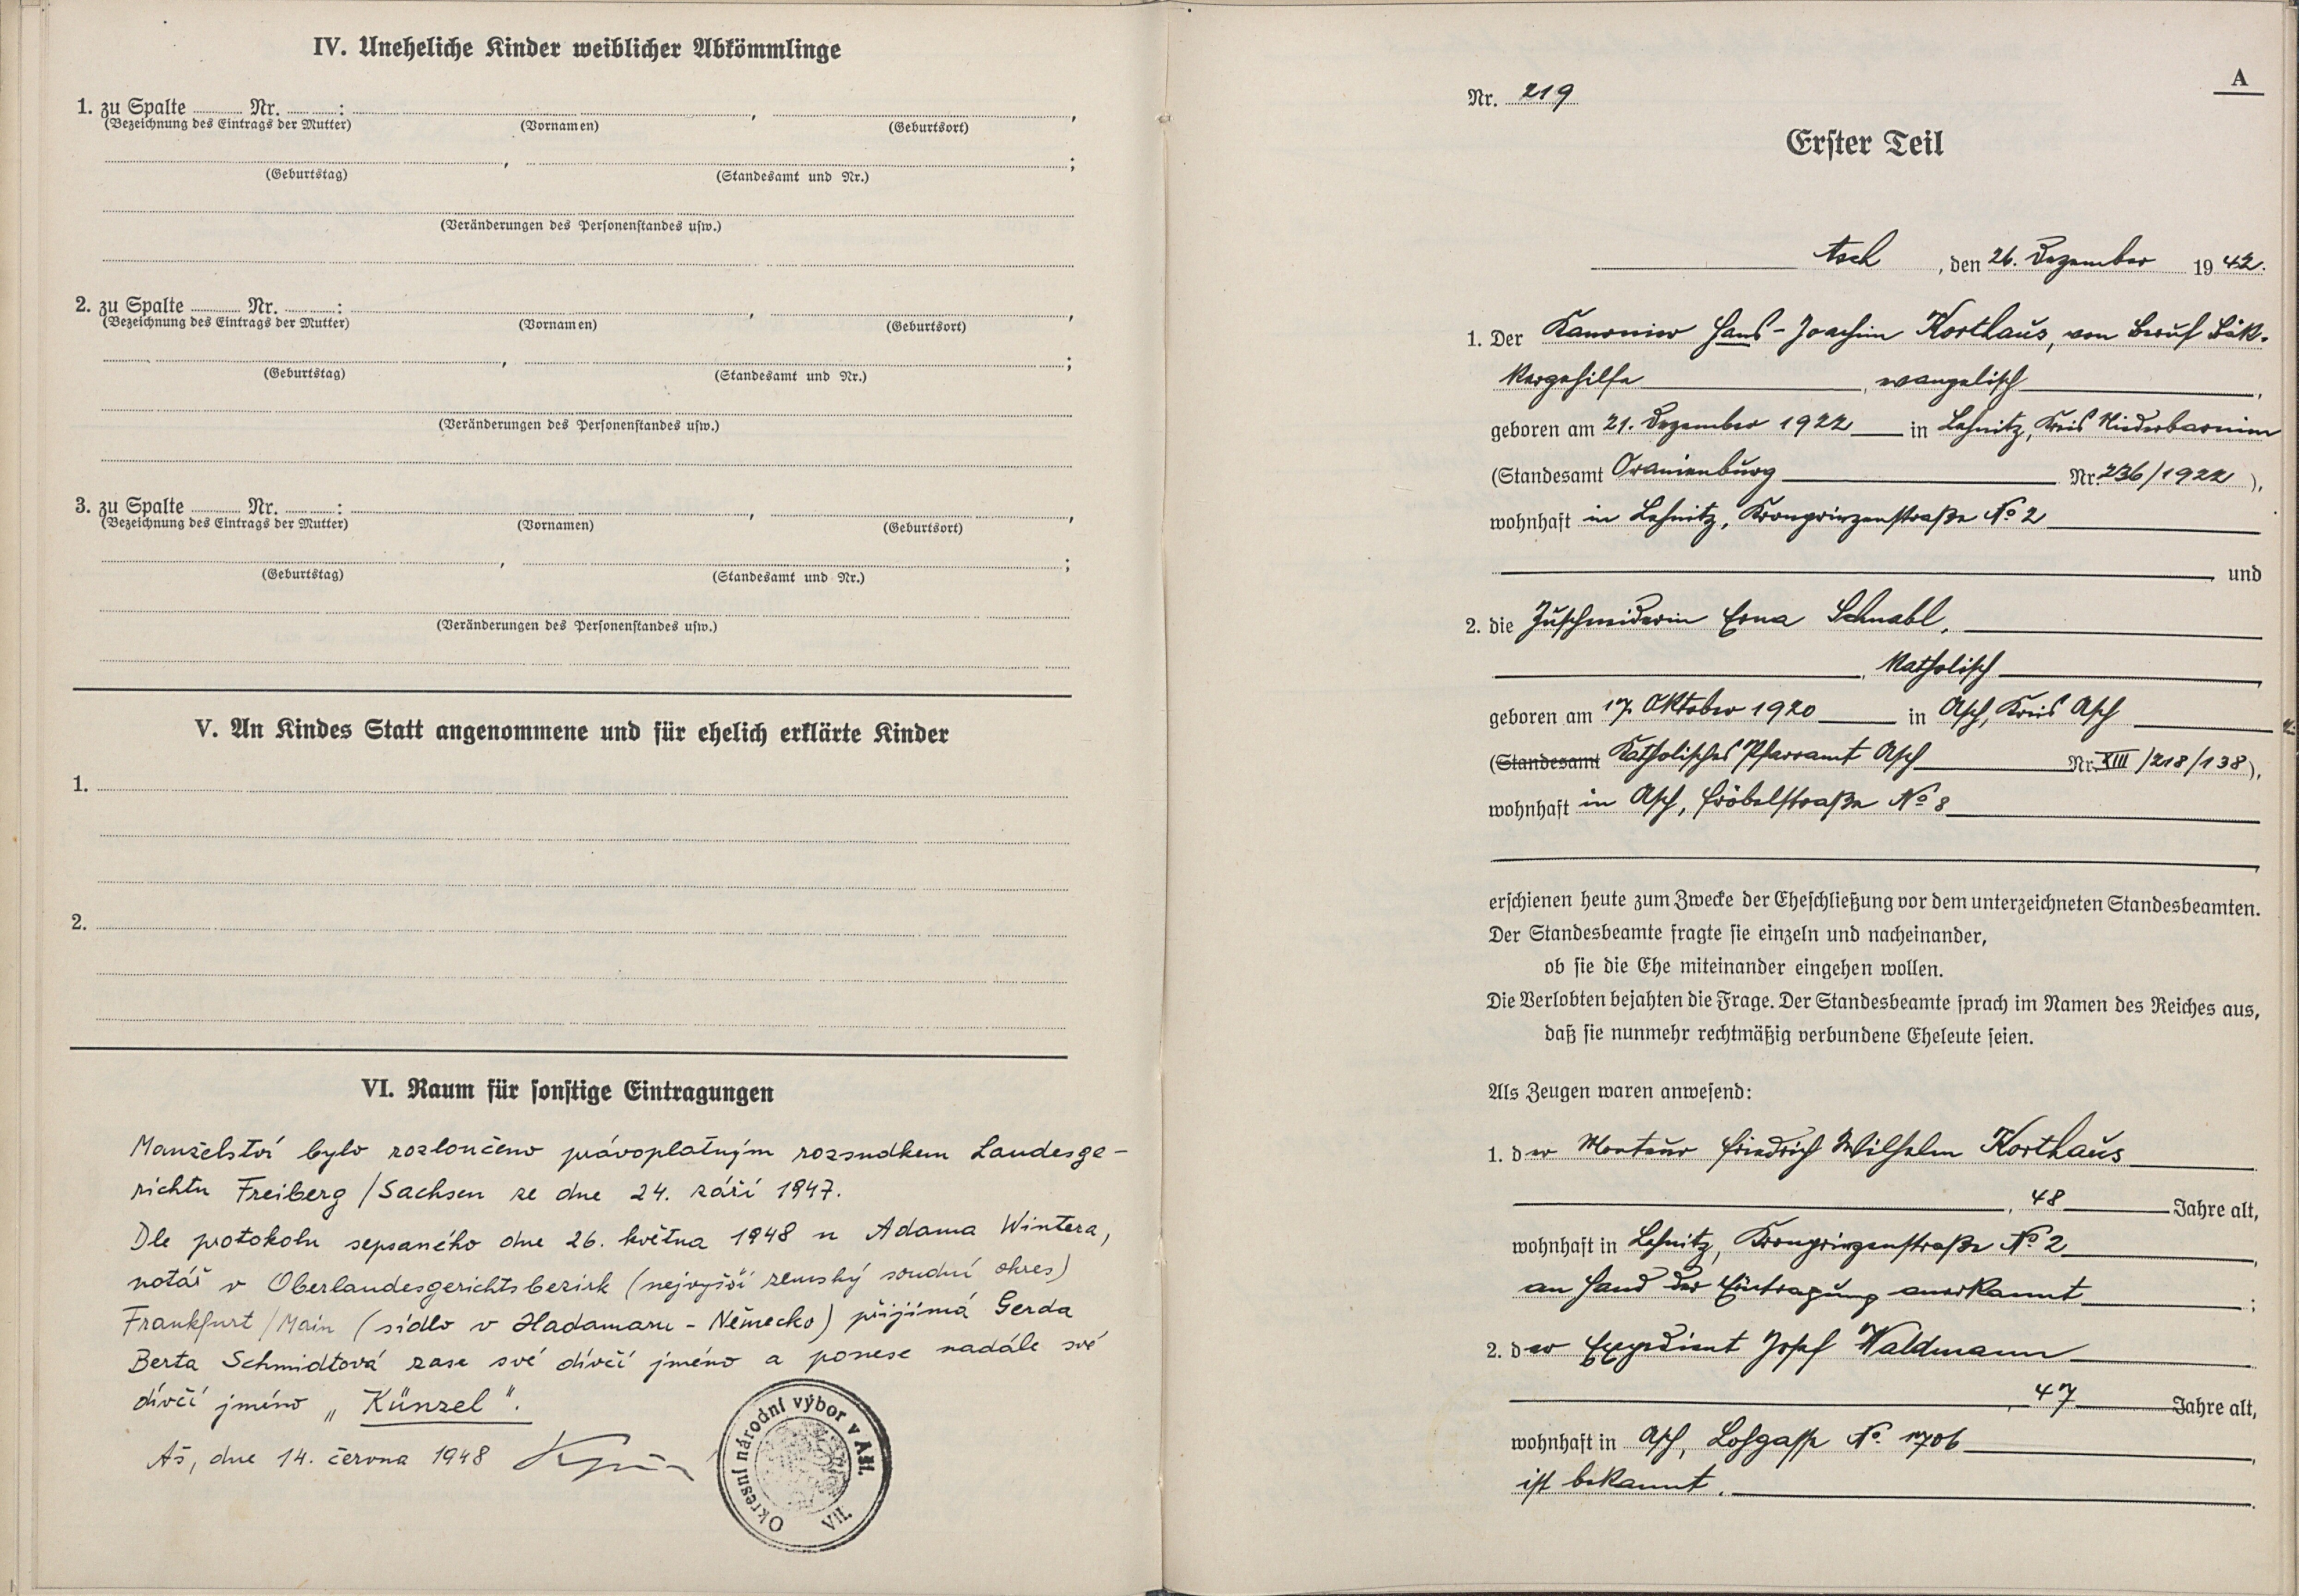 IV. Uneheliche Kinder weiblicher Abkömmlinge
1. zu Spalte Nr. : , ,
(Bezeichnung des Eintrags der Mutter) (Vornamen) (Geburtsort)
, ;
(Geburtstag) (Standesamt und Nr.)
(Veränderungen des Personenstandes usw.)
2. zu Spalte Nr. : , ,
(Bezeichnung des Eintrags der Mutter) (Vornamen) (Geburtsort)
, ;
(Geburtstag) (Standesamt und Nr.)
(Veränderungen des Personenstandes usw.)
3. zu Spalte Nr. : , ,
(Bezeichnung des Eintrags der Mutter) (Vornamen) (Geburtsort)
, ;
(Geburtstag) (Standesamt und Nr.)
(Veränderungen des Personenstandes usw.)
V. An Kindes Statt angenommene und für ehelich erklärte Kinder
1.
2.
VI. Raum für sonstige Eintragungen
Manželství bylo rozloučeno právoplatným rozsudkem Landesge-
richtu Freiberg/Sachsen ze dne 24. září 1947.
Dle protokolu sepsaného dne 26. května 1948 u Adama Wintera,
notář v Oberlandesgerichtsbezirk (nejvyšší zemský soudní okres)
Frankfurt/Main (sídlo v Hadamaru - Německo) přijímá Gerda
Berta Schmidtová zase své dívčí jméno a ponese nadále své
dívčí jméno „Künzel".
Aš, dne 14. června 1948
Okresní národní výbor v Aši.
VII.
A
Nr. 219
Erster Teil
Asch, den 26. Dezember 1942.
1. Der Kanonier Hans-Joachim Korthaus, von Beruf Bäk-
kergehilfe, evangelisch,
geboren am 21. Dezember 1922 in Lehnitz, Kreis Niederbarnim
(Standesamt Oranienburg Nr. 236/1922),
wohnhaft in Lehnitz, Kronprinzenstraße No 2
und
2. die Zuschneiderin Erna Schnabl,
, katholisch,
geboren am 17. Oktober 1920 in Asch, Kreis Asch
(Standesamt Katholisches Pfarramt Asch Nr. XIII/218/138),
wohnhaft in Asch, Fröbelstraße No 8
,
erschienen heute zum Zwecke der Eheschließung vor dem unterzeichneten Standesbeamten.
Der Standesbeamte fragte sie einzeln und nacheinander,
ob sie die Ehe miteinander eingehen wollen.
Die Verlobten bejahten die Frage. Der Standesbeamte sprach im Namen des Reiches aus,
daß sie nunmehr rechtmäßig verbundene Eheleute seien.
Als Zeugen waren anwesend:
1. der Monteur Friedrich Wilhelm Korthaus
, 48 Jahre alt,
wohnhaft in Lehnitz, Kronprinzenstraße No 2,
an Hand der Eintragung anerkannt;
2. der Expedient Josef Waldmann
, 47 Jahre alt,
wohnhaft in Asch, Lohgasse No. 1706,
ist bekannt.